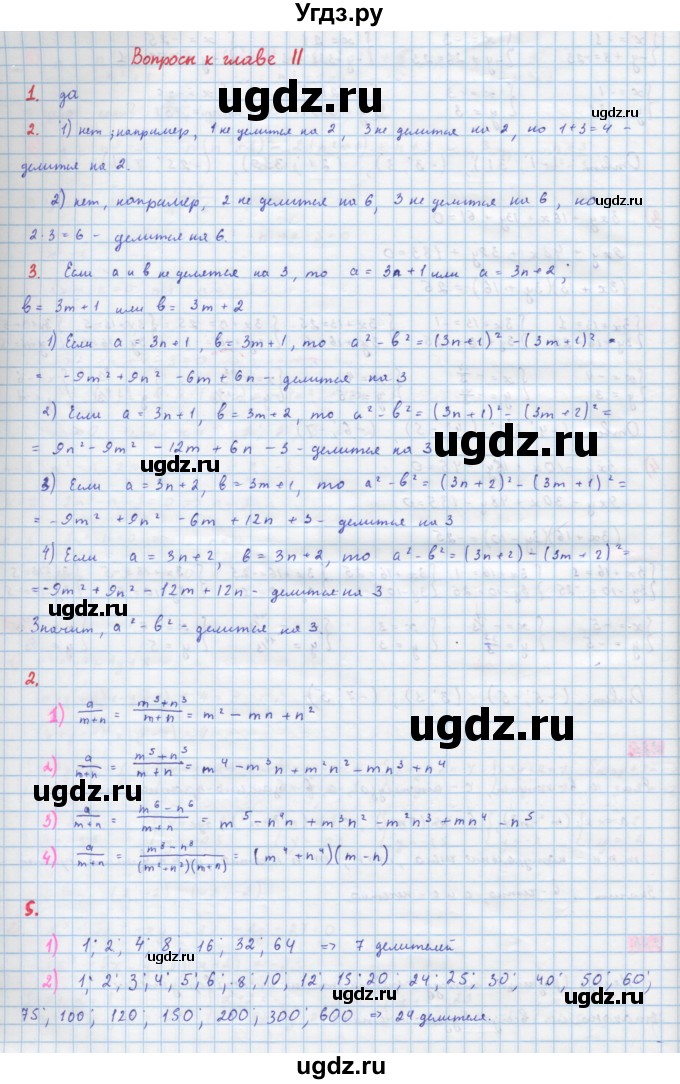 Угдз.ру
Вопросы к главе II
1. да
2. 1) нет, например, 1 не делится на 2, 3 не делится на 2, но 1+3=4 -
делится на 2.
2) нет, например, 2 не делится на 6, 3 не делится на 6, но
2·3=6 - делится на 6.
3. Если a и b не делятся на 3, то a = 3n+1 или a = 3n+2;
b = 3m+1 или b = 3m+2
1) Если a = 3n+1, b = 3m+1, то a² - b² = (3n+1)² - (3m+1)² =
= -9m² + 9n² - 6m + 6n - делится на 3
2) Если a = 3n+1, b = 3m+2, то a² - b² = (3n+1)² - (3m+2)² =
= 9n² - 9m² - 12m + 6n - 3 - делится на 3
3) Если a = 3n+2, b = 3m+1, то a² - b² = (3n+2)² - (3m+1)² =
= -9m² + 9n² - 6m + 12n + 3 - делится на 3
4) Если a = 3n+2, b = 3n+2, то a² - b² = (3n+2) - (3m+2)² =
= -9m² + 9n² - 12m + 12n - делится на 3
Значит, a² - b² - делится на 3.
2.
1) a/(m+n) = (m³+n³)/(m+n) = m² - mn + n²
2) a/(m+n) = (m⁵+n⁵)/(m+n) = m⁴ - m³n + m²n² - mn³ + n⁴
3) a/(m+n) = (m⁶-n⁶)/(m+n) = m⁵ - n⁴n + m³n² - m²n³ + mn⁴ - n⁵
4) a/(m+n) = (m⁸-n⁸)/((m²-n²)(m+n)) = (m⁴+n⁴)(m-n)
5.
1) 1; 2; 4; 8; 16; 32; 64 => 7 делителей
2) 1; 2; 3; 4; 5; 6; 8; 10; 12; 15; 20; 24; 25; 30; 40; 50; 60;
75; 100; 120; 150; 200; 300; 600 => 24 делителя.
ugdz.ru
ugdz.ru
ugdz.ru
ugdz.ru
ugdz.ru
ugdz.ru
ugdz.ru
ugdz.ru
ugdz.ru
ugdz.ru
ugdz.ru
ugdz.ru
ugdz.ru